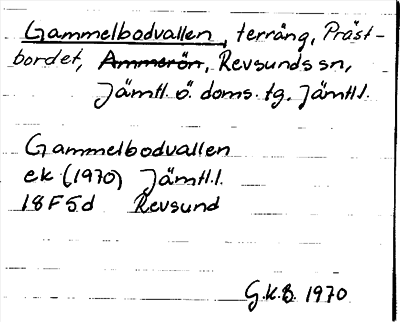 Gammelbodvallen, terräng, Präst-
bordet, Ammerön, Revsunds sn,
Jämtl. ö. doms. tg. Jämtl.l.
Gammelbodvallen
ek (1970) Jämtl.l.
18F5d Revsund
G.K.B. 1970